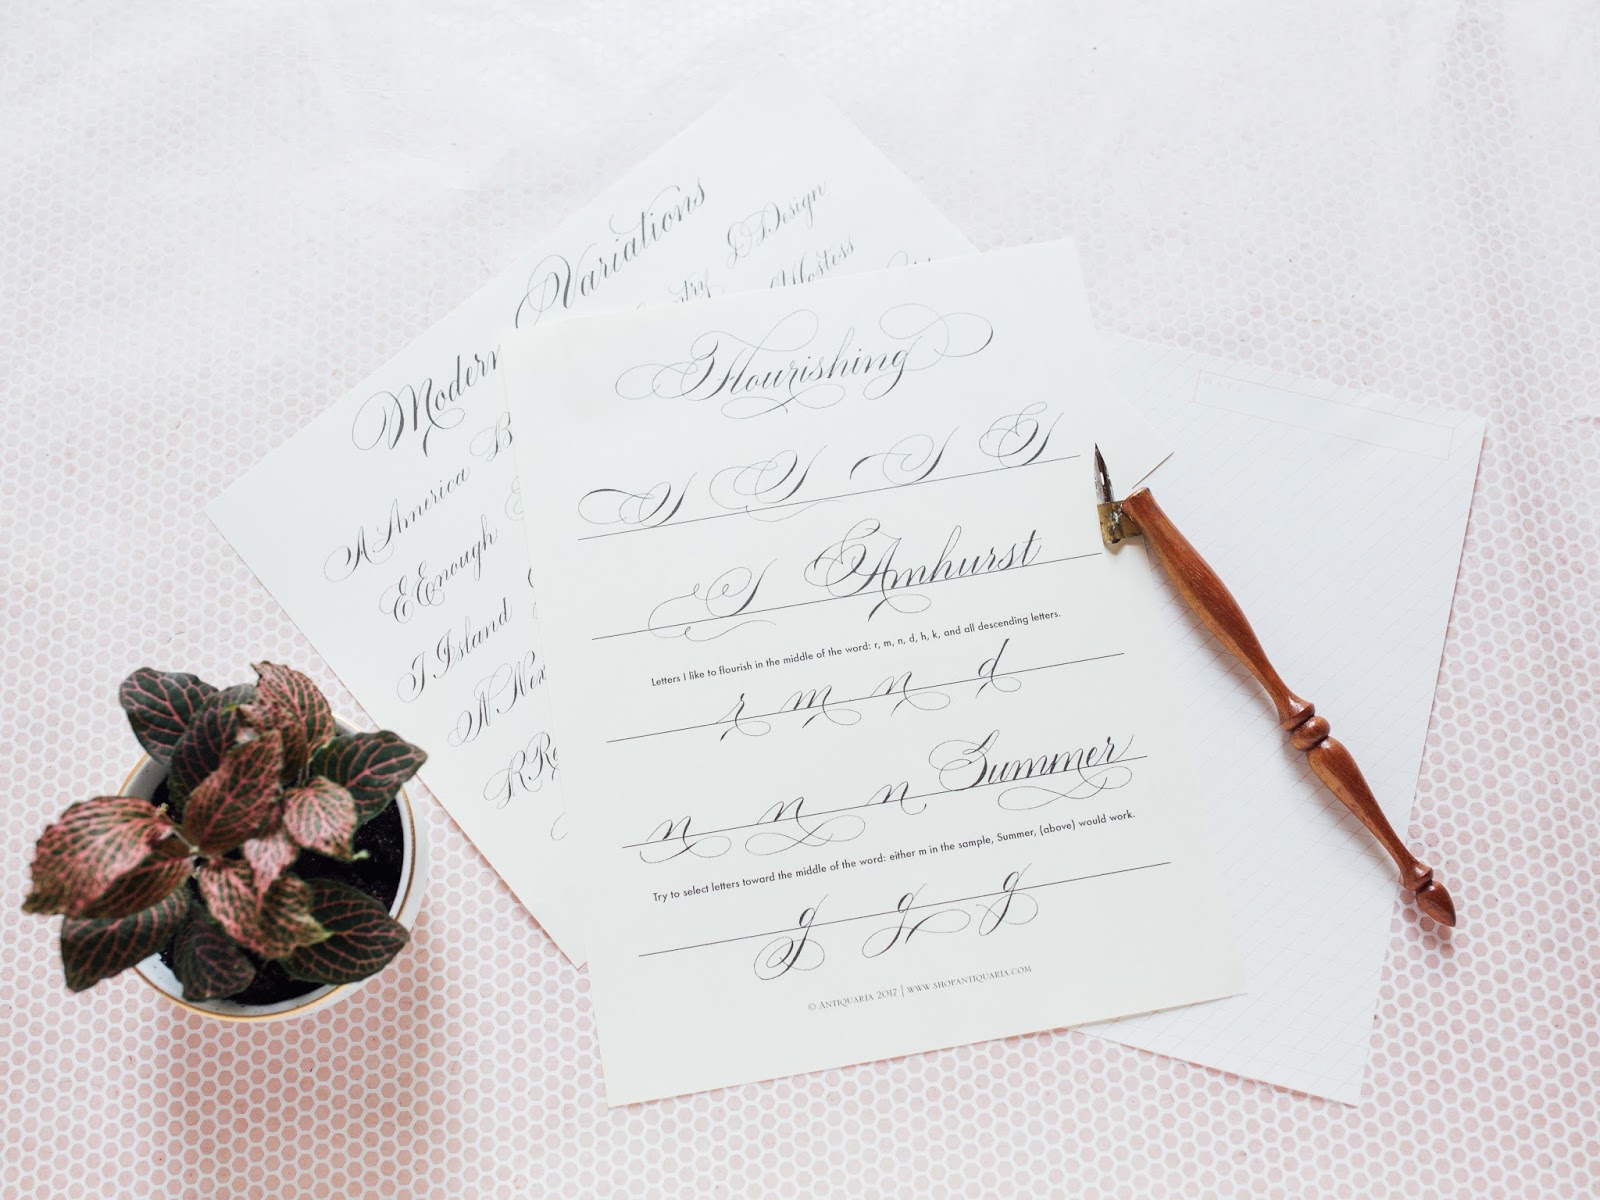 Modern Variations
A America B
D Design
E Enough
Hostess
I Island
N
R
Flourishing
Amhurst
Letters I like to flourish in the middle of the word: r, m, n, d, h, k, and all descending letters.
r m n d
n n n Summer
Try to select letters toward the middle of the word: either m in the sample, Summer, (above) would work.
g g g
© Antiquaria 2017 | www.shopantiquaria.com